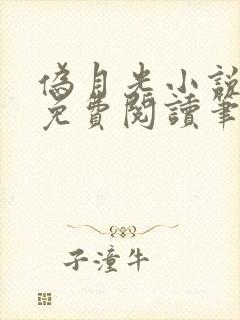 偽月光小說
免費閱讀筆
子潼牛